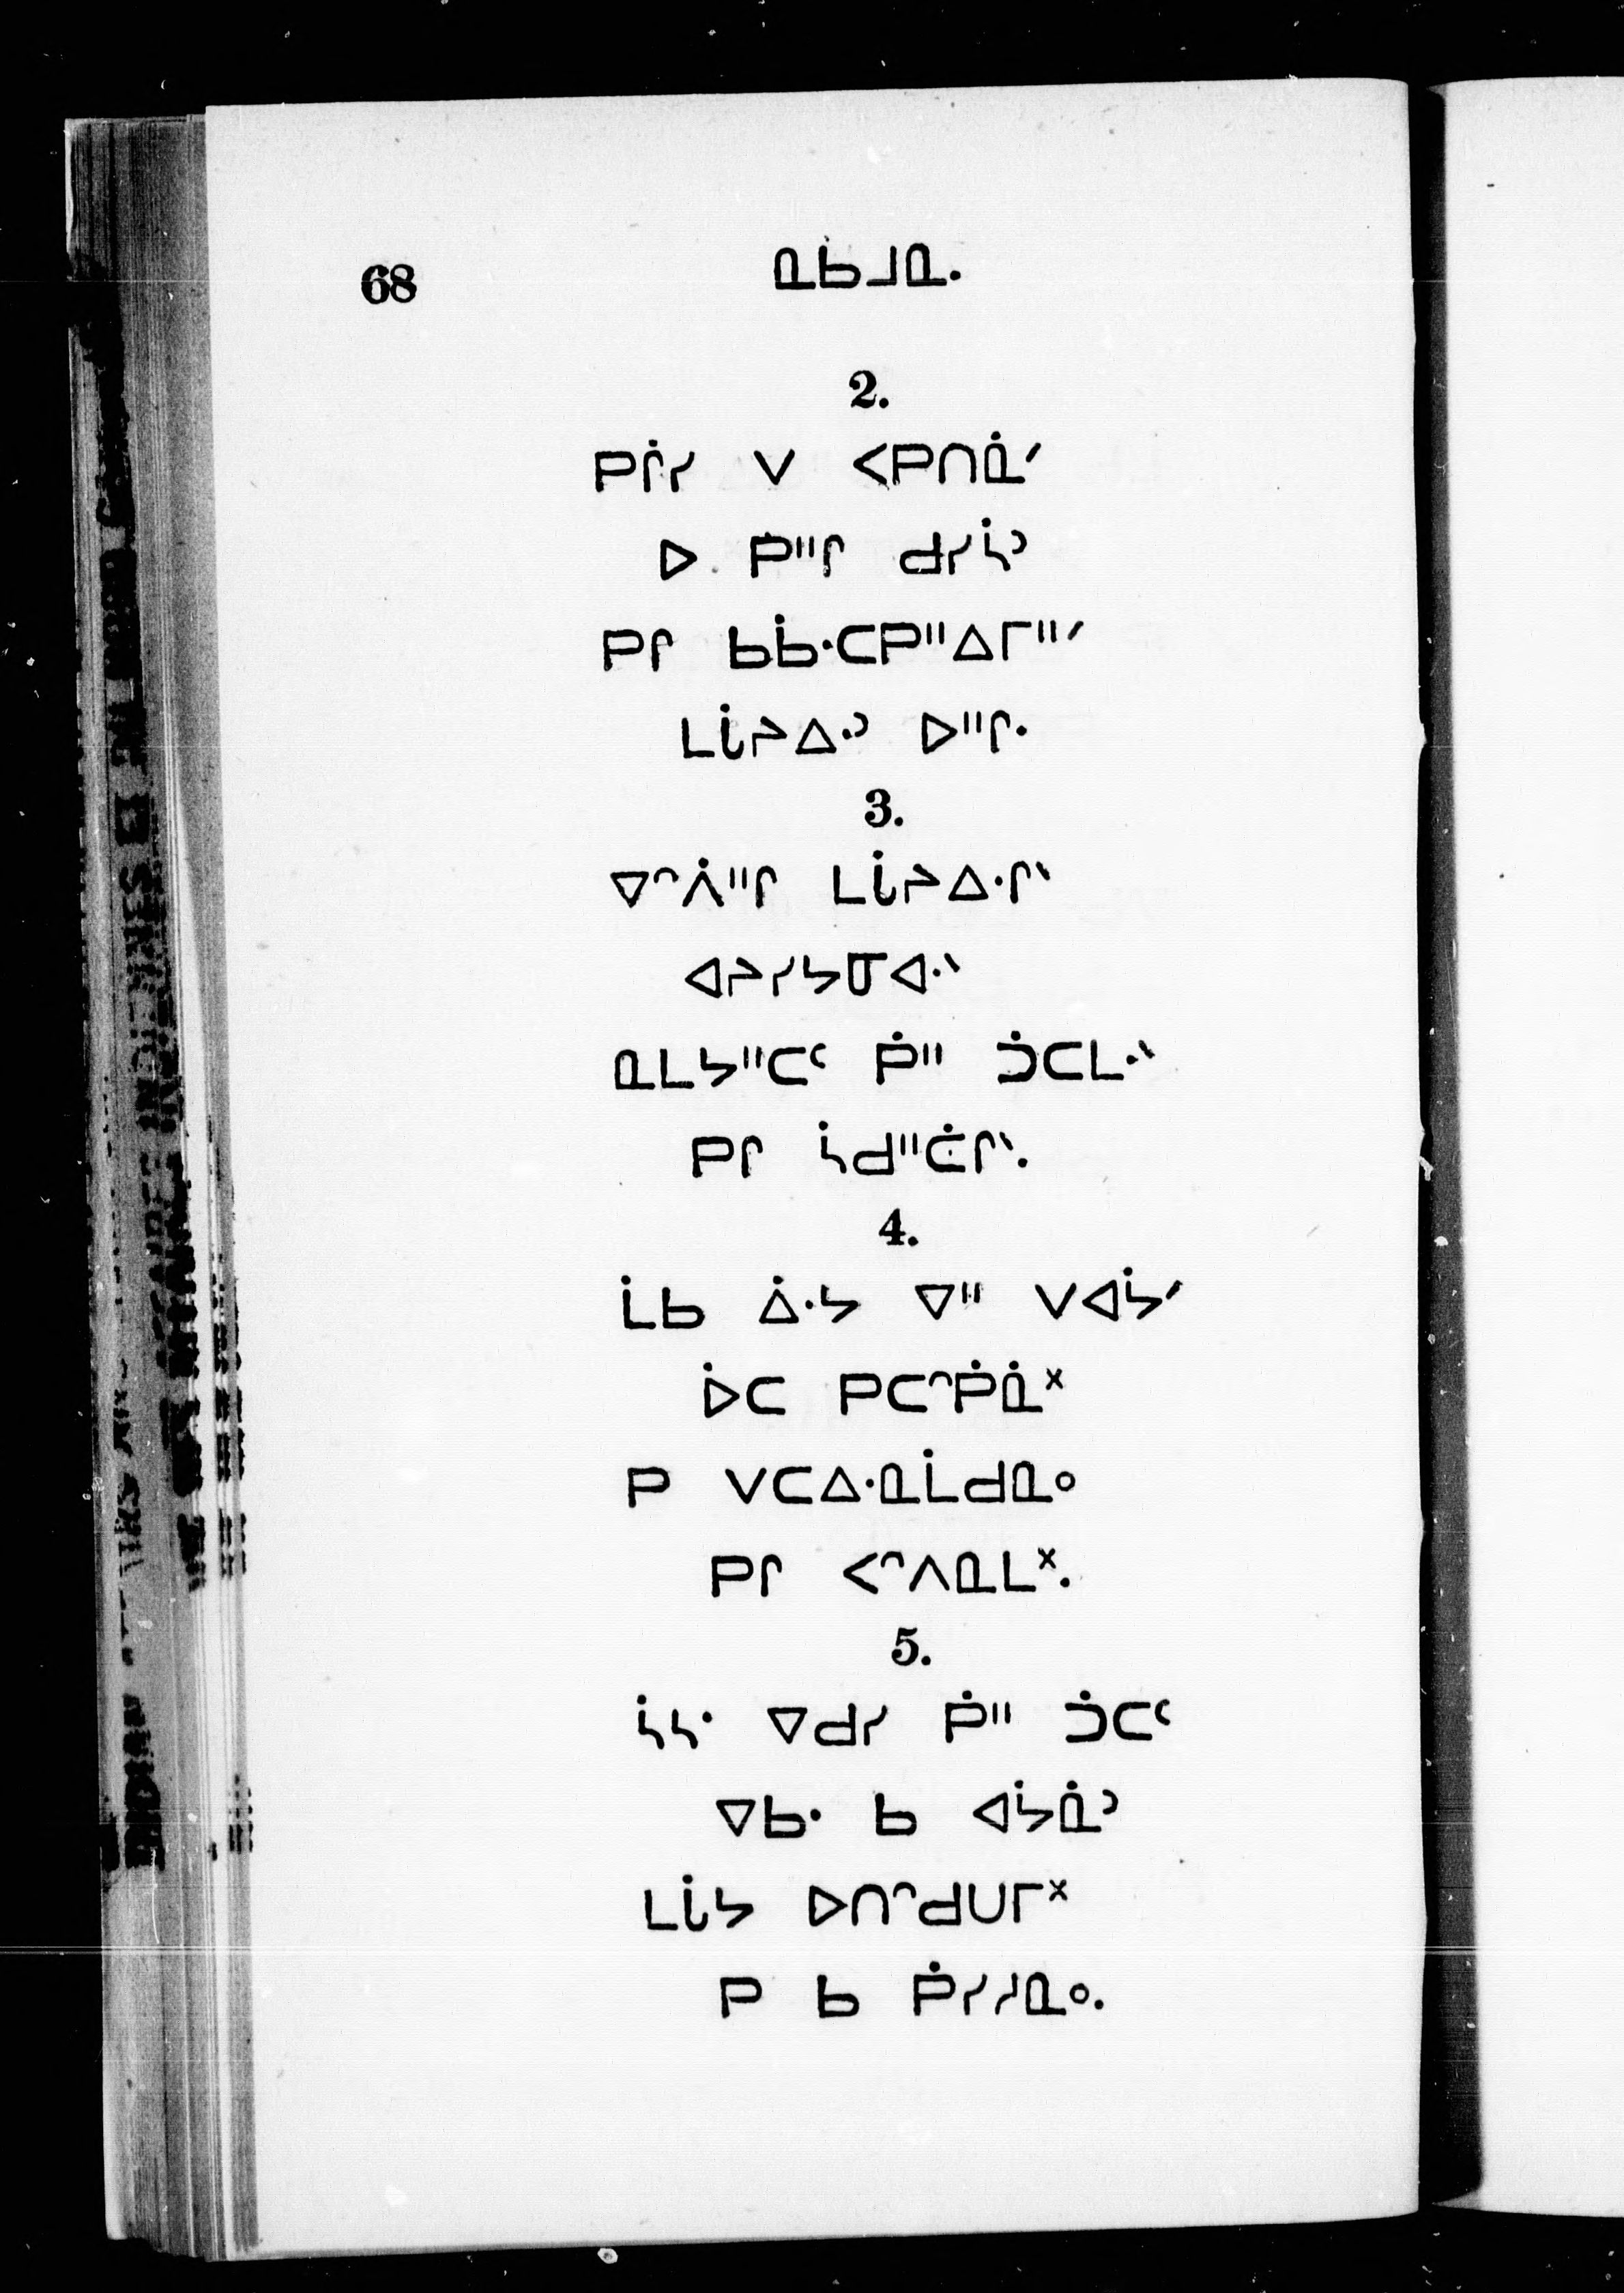 68 ᓇᑲᒧᓇ.
2.
ᑭᒌᓯ ᐯ ᐸᑭᑎᓈᐟ
ᐅ ᑮᐦᒋ ᑯᓯᓵᐣ
ᑭᒋ ᑲᑳᐧᑕᑭᐦᐃᒥᐦᐟ
ᒪᒑᔨᐃᐧᐣ ᐅᐦᒋ.
3.
ᐁᐢᐲᐦᒋ ᒪᒑᔨᐃᐧᒋᐠ
ᐊᔨᓯᔭᓂᐊᐧᐠ
ᓇᒪᔭᐦᑕᑦ ᑮᐦ ᑑᑕᒪᐧᐠ
ᑭᒋ ᓵᑯᐦᑖᒋᐠ.
4.
ᒫᑲ ᐄᐧᔭ ᐁᐦ ᐯᐊᔮᐟ
ᐆᑕ ᑭᑕᐢᑮᓈᕽ
ᑭ ᐯᑕᐃᐧᓇᒫᑯᓇᐤ
ᑭᒋ ᐸᐢᐱᓇᒪᕽ.
5.
ᓵᓴᐧ ᐁᑯᓯ ᑮᐦ ᑑᑕᑦ
ᐁᑲᐧ ᑲ ᐊᔮᓈᐣ
ᒪᒑᔭ ᐅᑎᐢᑯᑌᒥᕽ
ᑭ ᑲ ᑮᓯᓱᓇᐤ.